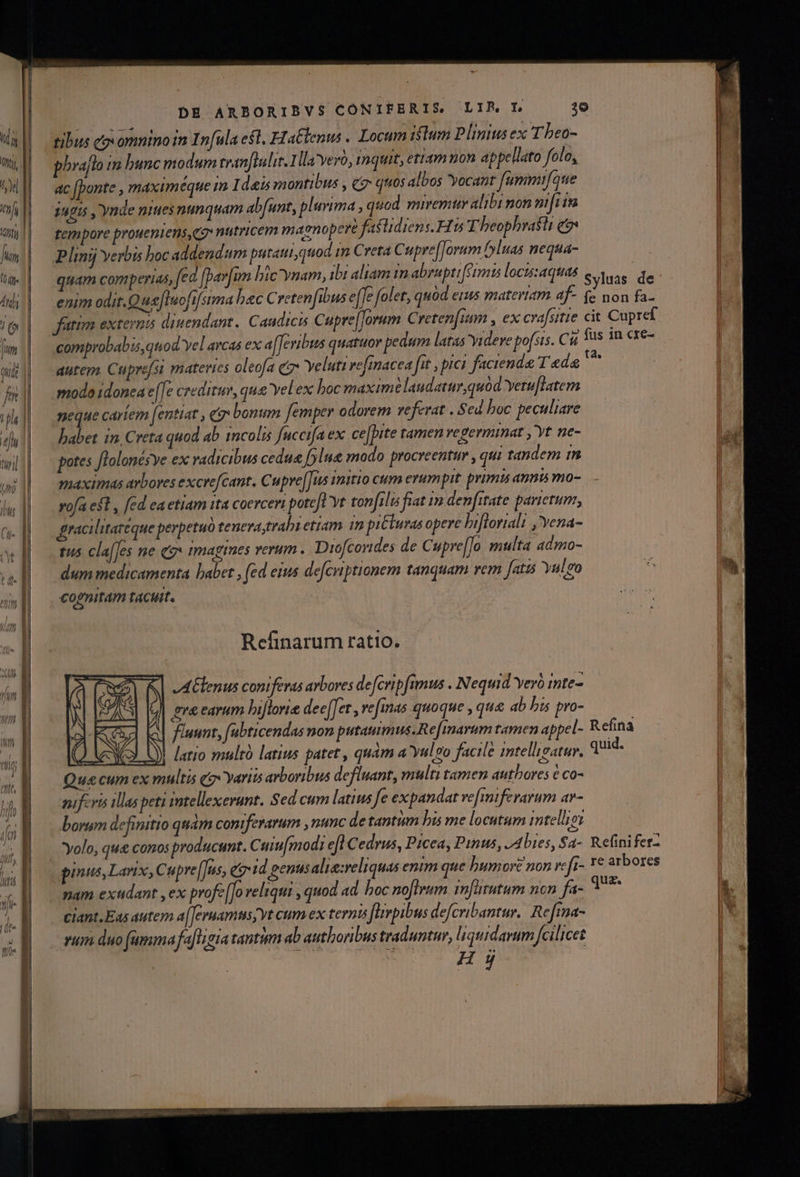 DE ARBORIBVS CONIFERIS. LIB. I. 30
tibus & omnino in Insula est. Hactenus. Locum istum Plinius ex Theo-
phrasto in hunc modum transtulit. Illa verò, inquit, etiam non appellato solo,
ac sponte, maximéque in Idæis montibus, & quos albos vocant summisque
iugis, vnde niues nunquam absunt, plurima, quod miremur alibi non nisi in
tempore proueniens, & nutricem magnoperè fastidiens. His Theophrasti &
Plinij verbis hoc addendum putaui, quod in Creta Cupressorum syluas nequa-
quam comperias, sed sparsim hîc vnam, ibi aliam in abruptissimis locis: aquas
enim odit. Quæstuosissima hæc Cretensibus esse solet, quòd eius materiam af-
fatim externis diuendant. Caudicis Cupressorum Cretensium, ex crassitie
comprobabis, quod vel arcas ex asseribus quatuor pedum latas videre possis. Cũ
autem Cupressi materies oleosa & veluti resinacea sit, pici faciendæ Tædæ
modo idonea esse creditur, quæ vel ex hoc maximè laudatur, quòd vetustatem
neque cariem sentiat, & bonum semper odorem referat. Sed hoc peculiare
habet in Creta quod ab incolis succisa ex cespite tamen regerminat, vt ne-
potes stolonésve ex radicibus ceduæ syluæ modo procreentur, qui tandem in
maximas arbores excrescant. Cupressus initio cum erumpit primis annis mo-
rosa est, sed ea etiam ita coerceri potest vt tonsilis fiat in densitate parietum,
gracilitatéque perpetuò tenera, trahi etiam in picturas opere historiali, vena-
tus classes ne & imagines rerum. Dioscorides de Cupresso multa admo-
dum medicamenta habet, sed eius descriptionem tanquam rem satis vulgo
cognitam tacuit.
Syluas de
se non fa-
cit Cupres
sus in cre-
ta.
Resinarum ratio.
HActenus coniferas arbores descripsimus. Nequid verò inte-
græ earum historiæ deesset, resinas quoque, quæ ab his pro-
fluunt, subticendas non putauimus. Resinarum tamen appel-
latio multò latius patet, quàm a vulgo facilè intelligatur.
Quæ cum ex multis & variis arboribus defluant, multi tamen authores è co-
niferis illas peti intellexerunt. Sed cum latius se expandat resiniferarum ar-
borum definitio quàm coniferarum, nunc de tantùm his me locutum intelligi
volo, quæ conos producunt. Cuiusmodi est Cedrus, Picea, Pinus, Abies, Sa-
pinus, Larix, Cupressus, & id genus aliæ: reliquas enim que humorē non resi-
nam exudant, ex professo reliqui, quod ad hoc nostrum institutum non fa-
ciant. Eas autem asseruamus, vt cum ex ternis stirpibus describantur. Resina-
rum duo summa fastigia tantùm ab authoribus traduntur, liquidarum scilicet
Resina
quid.
Resinifer-
re arbores
quæ.
H ij